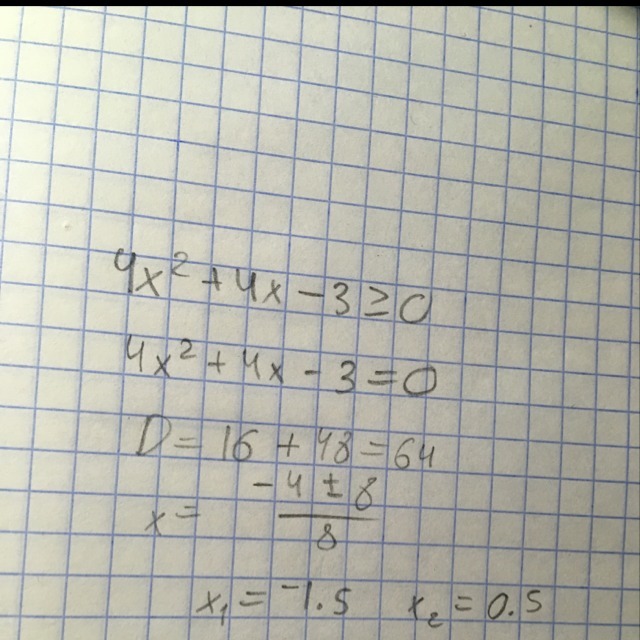 4x² + 4x - 3 ≥ 0
4x² + 4x - 3 = 0
D = 16 + 48 = 64
x = (-4 ± 8)/8
x₁ = -1.5 x₂ = 0.5